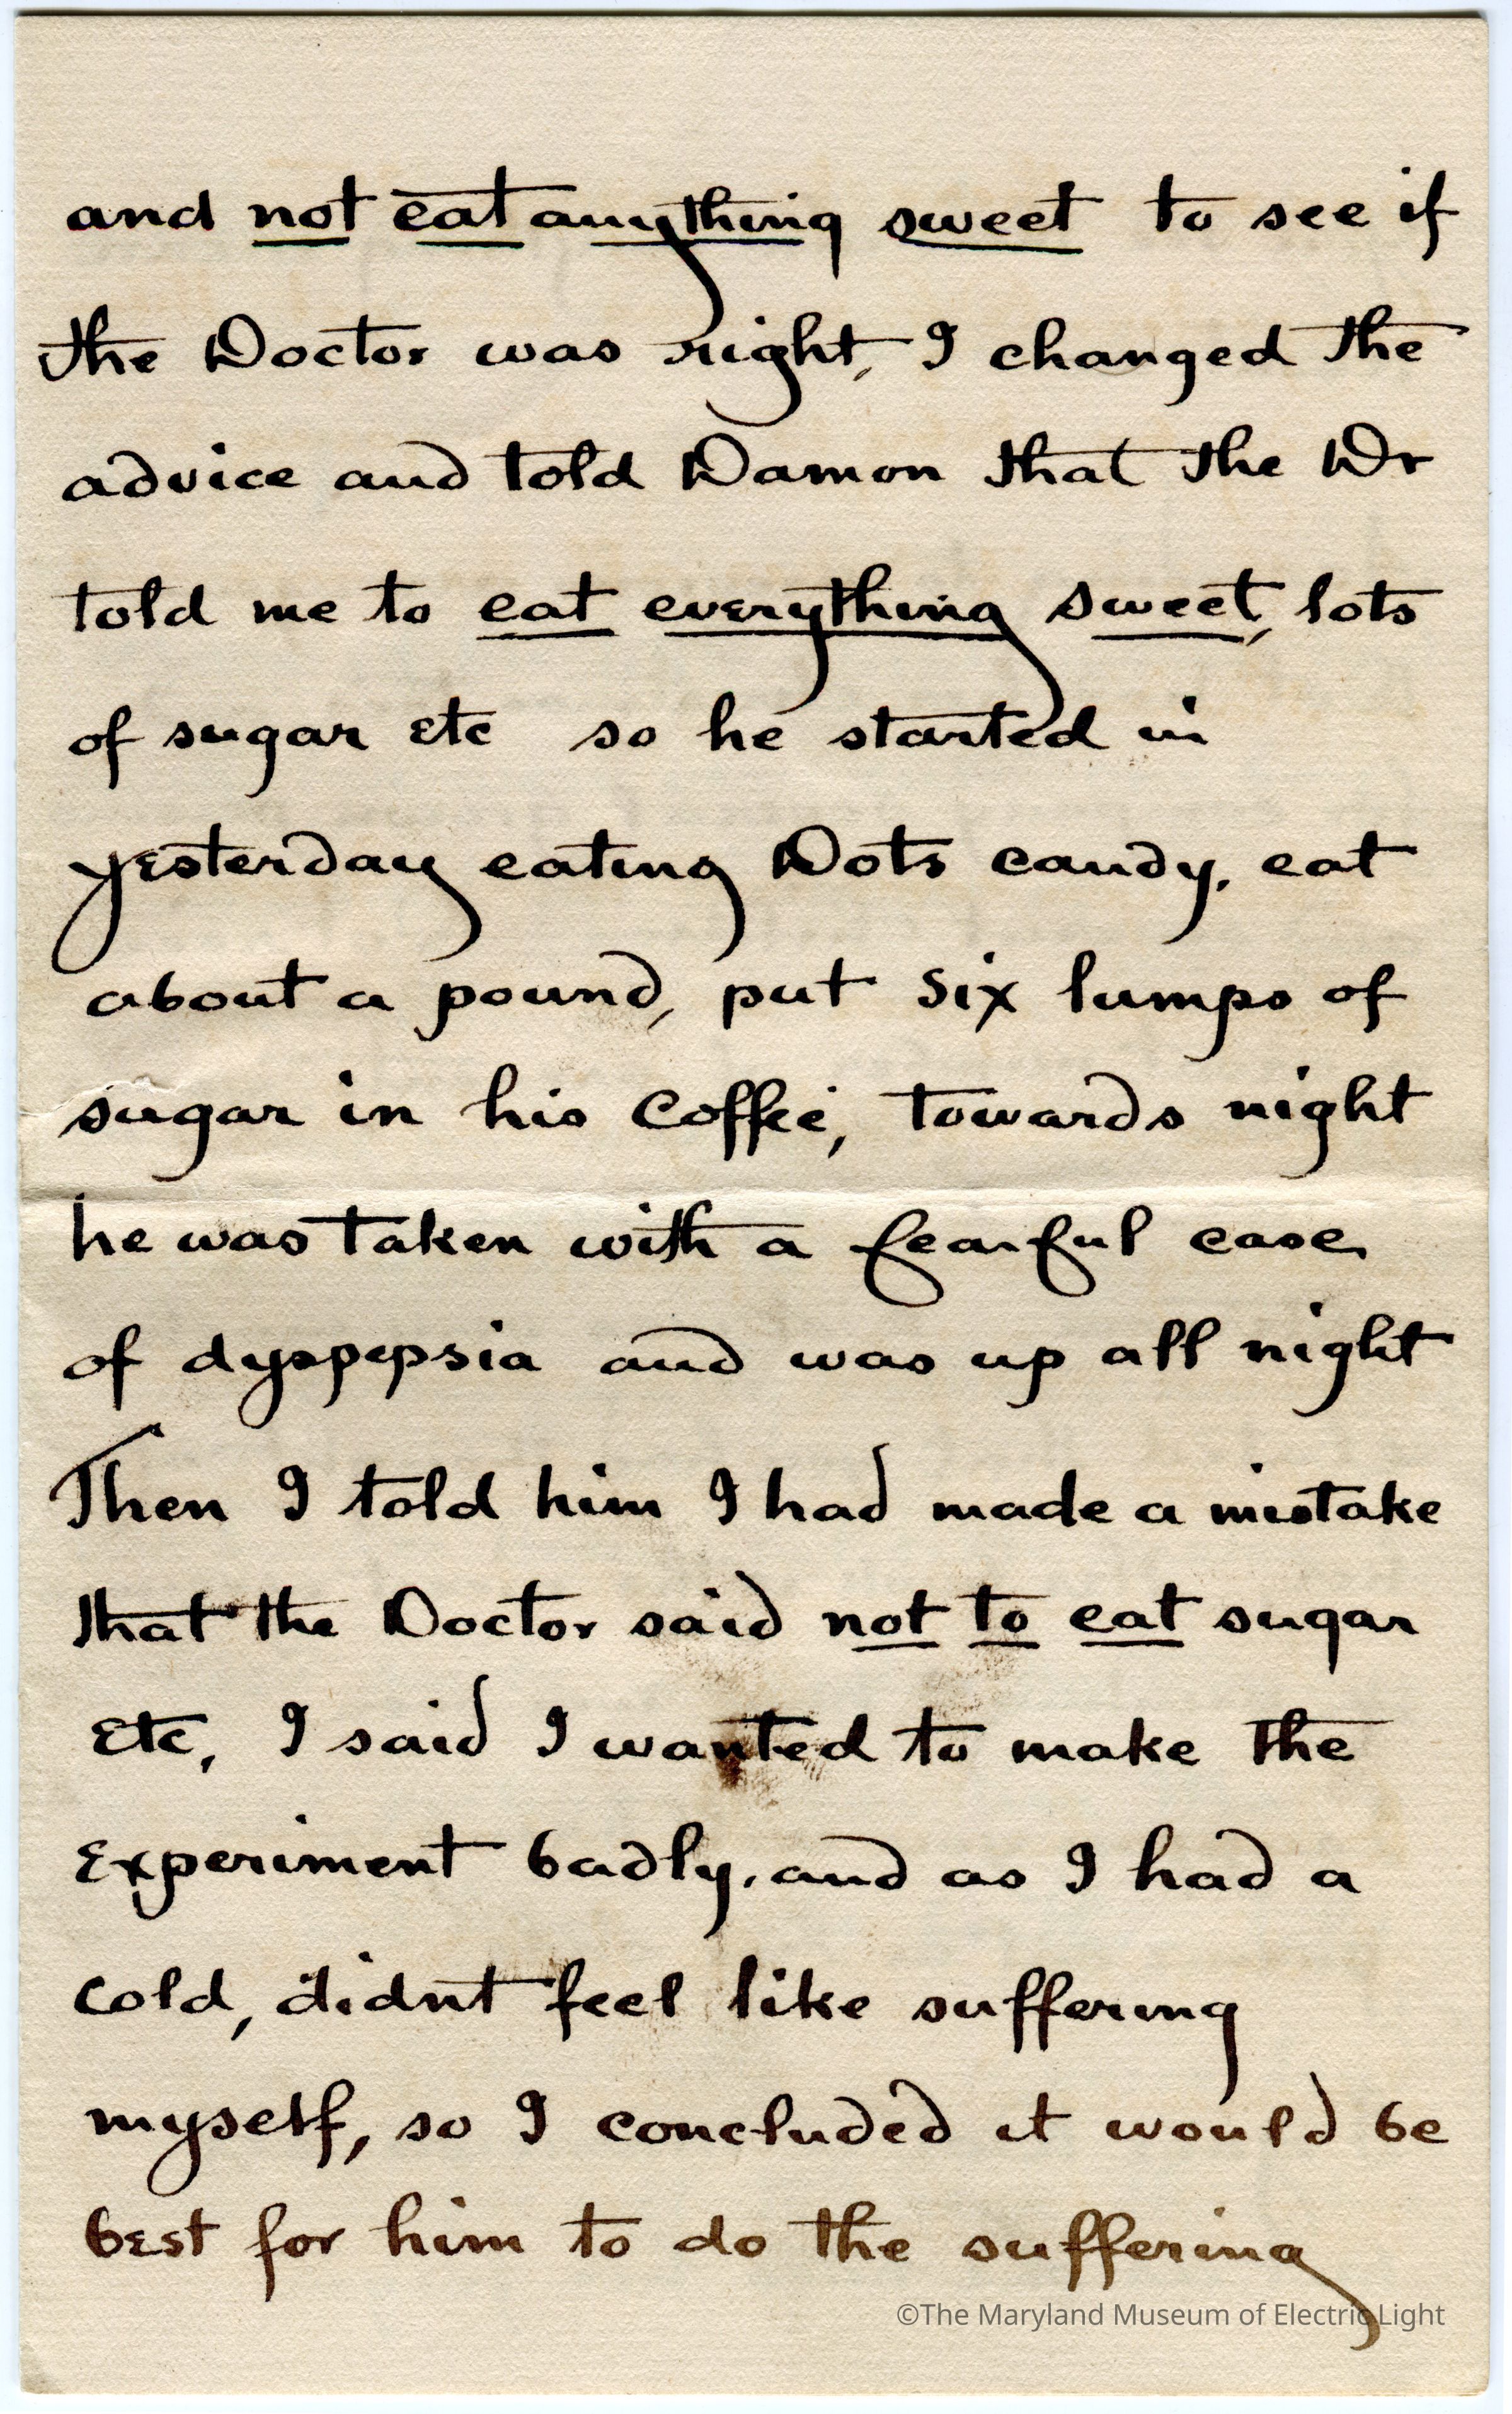 and not eat anything sweet to see if
the Doctor was right, I changed the
advice and told Damon that the Dr
told me to eat everything sweet, lots
of sugar etc so he started in
yesterday eating Dots candy, eat
about a pound, put six lumps of
sugar in his Coffee, towards night
he was taken with a fearful case
of dyspepsia and was up all night
Then I told him I had made a mistake
that the Doctor said not to eat sugar
etc, I said I wanted to make the
Experiment badly, and as I had a
cold, didnt feel like suffering
myself, so I concluded it would be
best for him to do the suffering
©The Maryland Museum of Electric Light